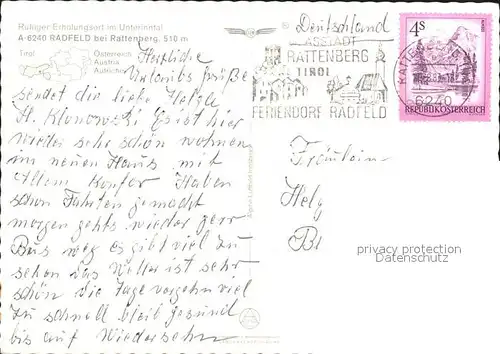 Ruhiger Erholungsort im Unterinntal
A-6240 RADFELD bei Rattenberg, 510 m
Tirol
Österreich
Austria
Autriche
Herzliche
Urlaubs grüße
sendet dir liebe Helga
H. Klonowski Es ist hier
wieder sehr schön wohnen
im neuen Haus mit
Allem Konfor Haben
schon Fahrten gemacht
morgen gehts wieder perr
Bus weg es gibt viel zu
sehen das Wetter ist sehr
schön die Tage vergehn viel
zu schnell bleib gesund
bis auf Wiedersehn
Deutschland
ASSTADT
RATTENBERG
TIROL
FERIENDORF RADFELD
4S
6240
REPUBLIK ÖSTERREICH
Fräulein
Helg
Be
privacy protection
Datenschutz